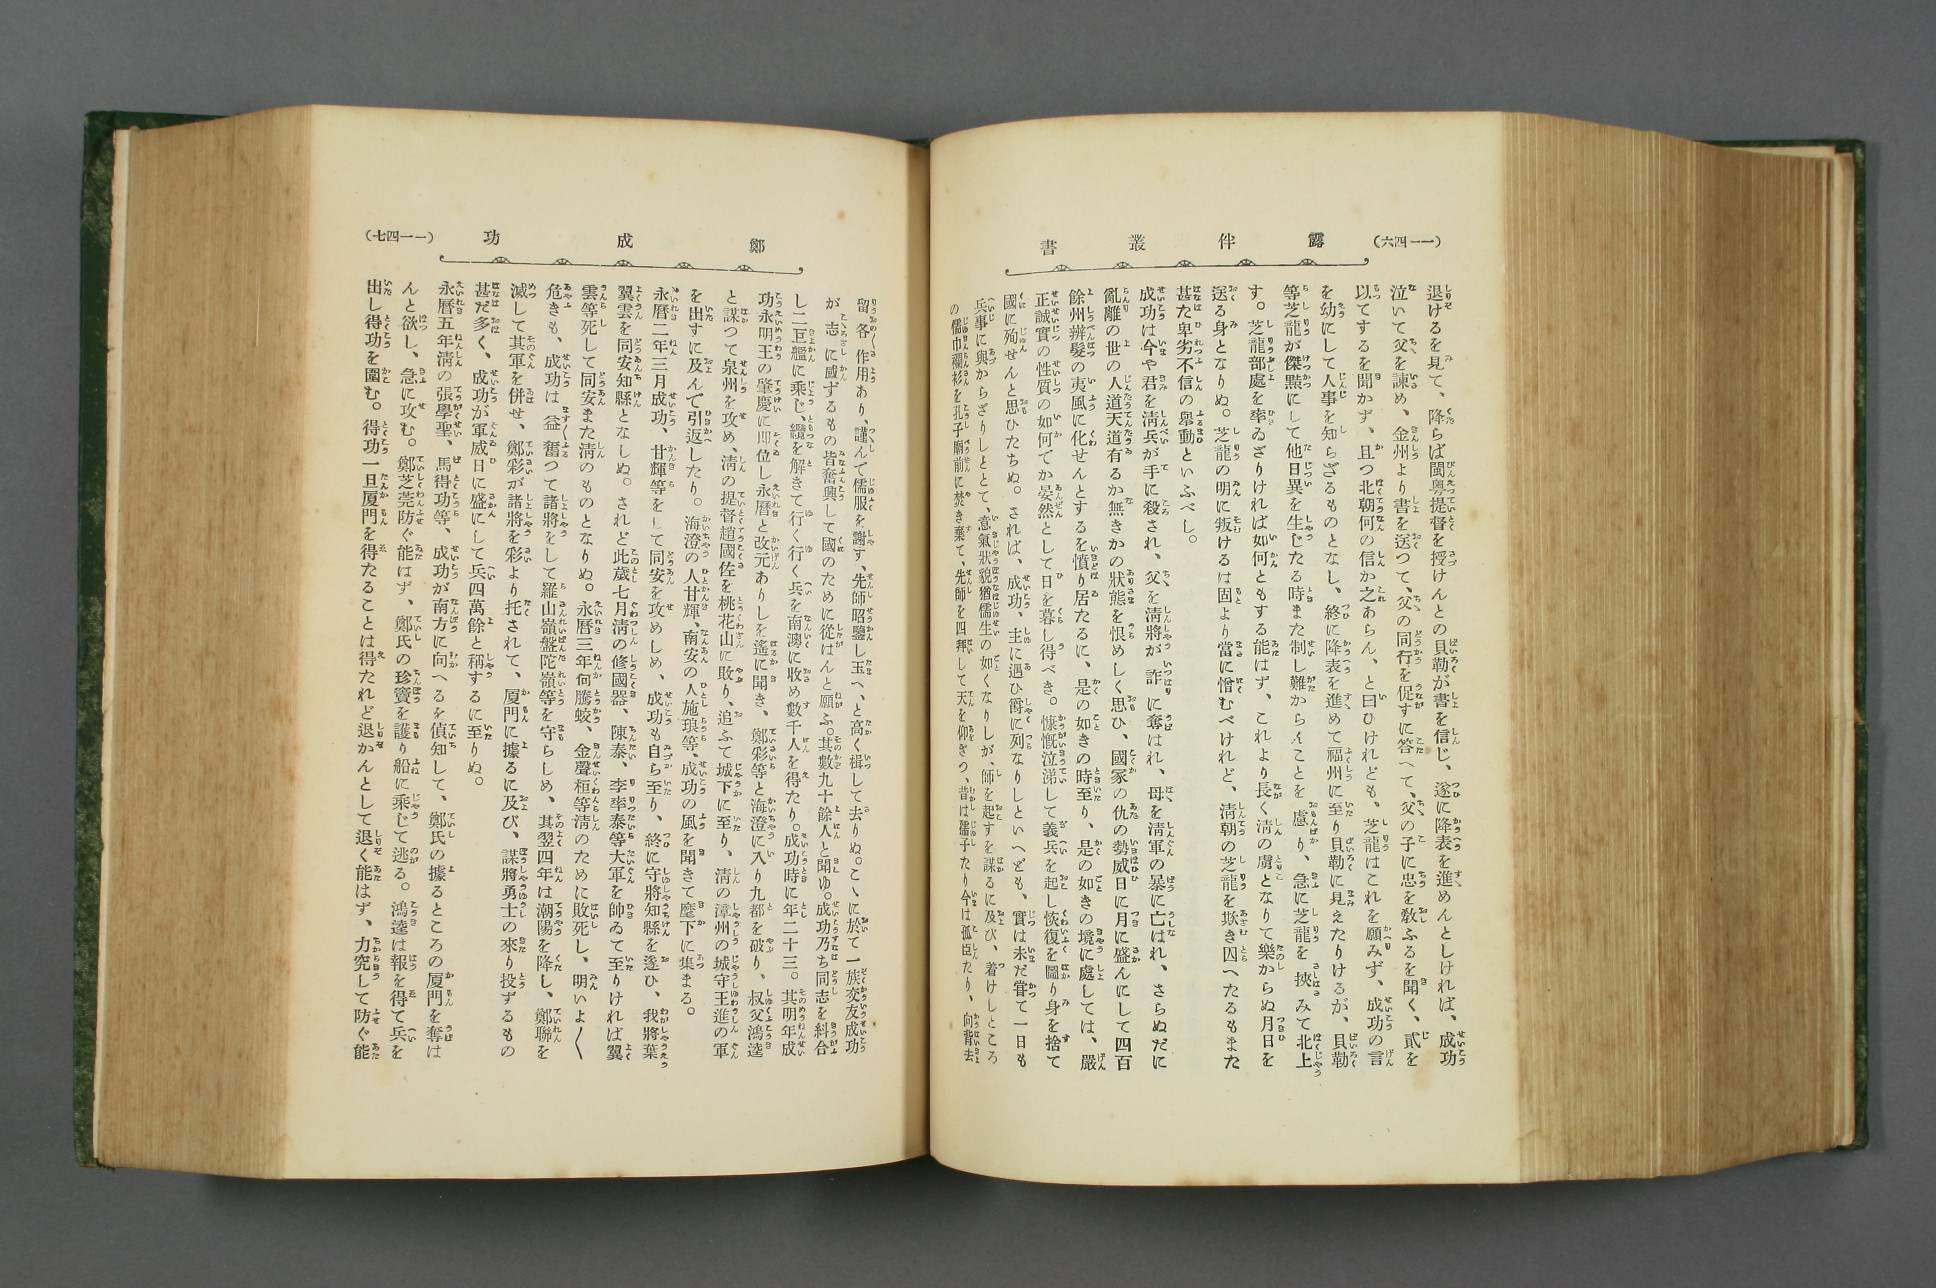 (一一四六)
露伴叢書
退けるを見て、降らば閩粤提督を授けんとの貝勒が書を信じ、遂に降表を進めんとしければ、成功
泣いて父を諫め、金州より書を送つて、父の同行を促すに答へて、父の子に忠を敎ふるを聞く、貳を
以てするを聞かず、且つ北朝何の信か之あらん、と曰ひけれども、芝龍はこれを願みず、成功の言
を幼にして人事を知らざるものとなし、終に降表を進めて福州に至り貝勒に見えたりけるが、貝勒
等芝龍が傑黠にして他日異を生じたる時また制し難からんことを慮り、急に芝龍を挾みて北上
す。芝龍部處を率ゐざりければ如何ともする能はず、これより長く淸の虜となりて樂からぬ月日を
送る身となりぬ。芝龍の明に叛けるは固より當に憎むべけれど、淸朝の芝龍を欺き囚へたるもまた
甚だ卑劣不信の擧動といふべし。
成功は今や君を淸兵が手に殺され、父を淸將が詐に奪はれ、母を淸軍の暴に亡はれ、さらぬだに
亂離の世の人道天道有るか無きかの狀態を恨めしく思ひ、國家の仇の勢威日に月に盛んにして四百
餘州辮髮の夷風に化せんとするを憤り居たるに、是の如きの時至り、是の如きの境に處しては、嚴
正誠實の性質の如何でか晏然として日を暮し得べき。慷慨泣涕して義兵を起し恢復を圖り身を捨て
國に殉せんと思ひたちぬ。されば、成功、主に遇ひ爵に列なりしといへども、實は未だ甞て一日も
兵事に與からざりしとて、意氣狀貌猶儒生の如くなりしが、師を起すを謀るに及び、着けしところ
の儒巾襴衫を孔子廟前に焚き棄て、先師を四拜して天を仰ぎつ、昔は孺子たり今は孤臣たり、向背去
(一一四七)
鄭成功
留各作用あり、謹んで儒服を謝す、先師昭鑒し玉へ、と高く揖して去りぬ。こゝに於て一族交友成功
が志に感ずるもの皆奮興して國のために從はんと願ふ。其數九十餘人と聞ゆ。成功乃ち同志を糾合
し二巨艦に乘じ、纜を解きて行く行く兵を南澳に收め數千人を得たり。成功時に年二十三。其明年成
功永明王の肇慶に卽位し永曆と改元ありしを遙に聞き、鄭彩等と海澄に入り九都を破り、叔父鴻逵
と謀つて泉州を攻め、淸の提督趙國佐を桃花山に敗り、追ふて城下に至り、淸の漳州の城守王進の軍
を出すに及んで引返したり。海澄の人甘輝、南安の人施琅等、成功の風を聞きて麾下に集まる。
永曆二年三月成功、甘輝等をして同安を攻めしめ、成功も自ら至り、終に守將知縣を逐ひ、我將葉
翼雲を同安知縣となしぬ。されど此歲七月淸の修國器、陳泰、李率泰等大軍を帥ゐて至りければ翼
雲等死して同安また淸のものとなりぬ。永曆三年何騰蛟、金聲桓等淸のために敗死し、明いよ〳〵
危きも、成功は益奮つて諸將をして羅山嶺盤陀嶺等を守らしめ、其翌四年は潮陽を降し、鄭聯を
滅して其軍を併せ、鄭彩が諸將を彩より托されて、厦門に據るに及び、謀將勇士の來り投ずるもの
甚だ多く、成功が軍威日に盛にして兵四萬餘と稱するに至りぬ。
永曆五年淸の張學聖、馬得功等、成功が南方に向へるを偵知して、鄭氏の據るところの厦門を奪は
んと欲し、急に攻む。鄭芝莞防ぐ能はず、鄭氏の珍寶を護り船に乘じて逃る。鴻逵は報を得て兵を
出し得功を圍む。得功一旦厦門を得たることは得たれど退かんとして退く能はず、力究して防ぐ能